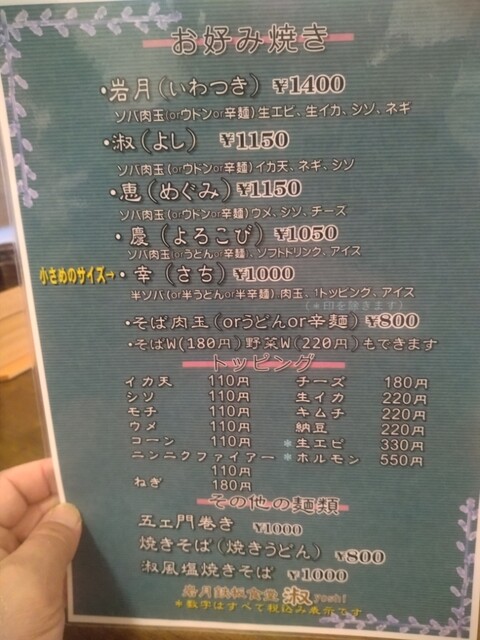 お好み焼き
・岩月(いわつき) ¥1400
ソバ肉玉(orウドンor辛麺)生エビ、生イカ、シソ、ネギ
・淑(よし) ¥1150
ソバ肉玉(orウドンor辛麺)イカ天、ネギ、シソ
・恵(めぐみ) ¥1150
ソバ肉玉(orウドンor辛麺)ウメ、シソ、チーズ
・慶(よろこび) ¥1050
ソバ肉玉(orうどんor辛麺)、ソフトドリンク、アイス
小さめのサイズ→・幸(さち) ¥1000
半ソバ(or半うどんor半辛麺) 肉玉、1トッピング、アイス
(*印を除きます)
・そば肉玉(orうどんor辛麺) ¥800
・そばW(180円)野菜W(220円)もできます
トッピング
イカ天 110円 チーズ 180円
シソ 110円 生イカ 220円
モチ 110円 キムチ 220円
ウメ 110円 納豆 220円
コーン 110円 *生エビ 330円
ニンニクファイアー *ホルモン 550円
110円
ねぎ 180円
その他の麺類
五エ門巻き ¥1000
焼きそば(焼きうどん) ¥800
淑風塩焼きそば ¥1000
岩月鉄板食堂 淑 yoshi
*数字はすべて税込み表示です